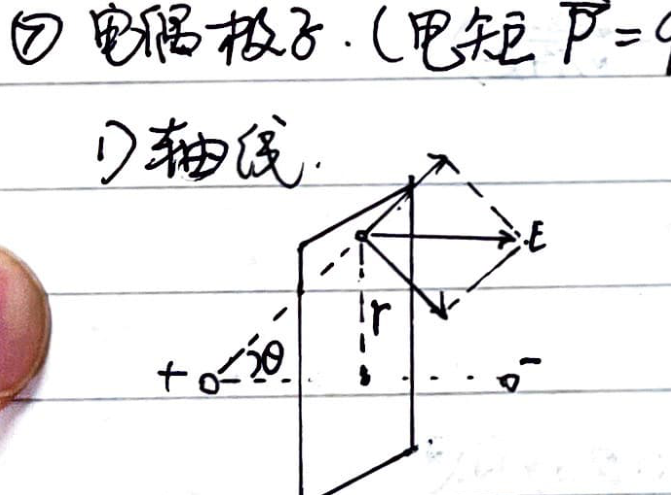 ⑦ 电偶极子.(电矩 P⃗=q
1) 轴线.
E
r
+ θ -